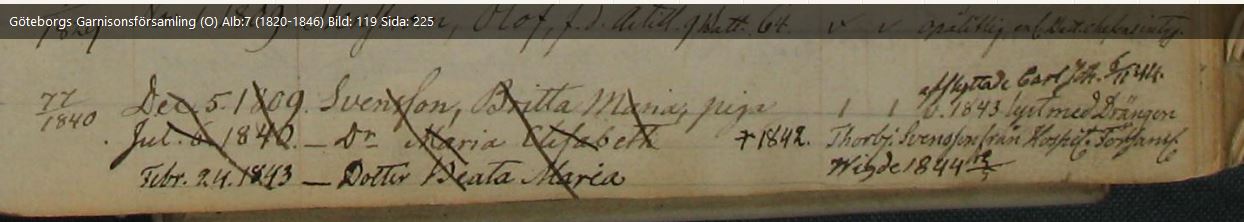 Göteborgs Garnisonsförsamling (O) Alb:7 (1820-1846) Bild: 119 Sida: 225
Olof, f.d. Artill. 9 Batt. 64.
afflyttade Carl Joh. 5/11 44.
77/1840 Dec. 5. 1809. Svensson, Britta Maria, piga 1 1 1843 lyst med Drängen
Jul. 8. 1840. — Dr Maria Elisabeth † 1842. Thorbj. Svensson från Hospit. Församl.
Febr. 24. 1843 — Dotter Beata Maria Wigde 1844